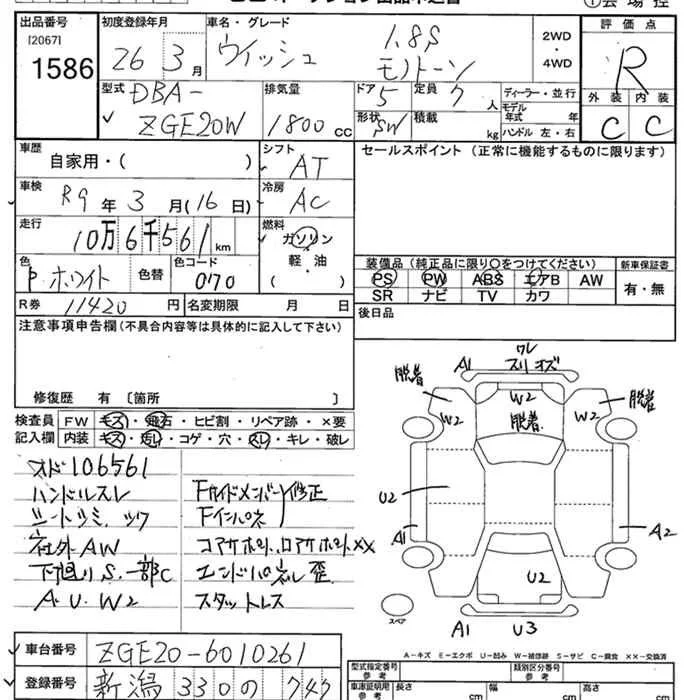 出品番号 初度登録年月 車名・グレード 評価点
[2067] 26年 3月 ウイッシュ 1.8S モノトーン 2WD・4WD R
1586
型式 DBA- 排気量 ドア 5 定員 7人 ディーラー・並行 外装 内装
ZGE20W 1800cc 形状 SW 積載 kg モデル年式 年 C C
ハンドル 左・右
車歴 自家用・( ) シフト AT セールスポイント (正常に機能するものに限ります)
車検 R9年 3月(16日) 冷房 AC
走行 10万6千561km 燃料 ガソリン
軽・油
( )
色 ホワイト 色替 色コード 070 装備品(純正品に限り○をつけてください) 新車保証書
PS PW ABS エアB AW 有・無
SR ナビ TV カワ
R券 11420円 名変期限 月 日 後日品
注意事項申告欄(不具合内容等は具体的に記入して下さい)
修復歴 有 〔箇所 〕
検査員 FW キズ・飛石・ヒビ割・リペア跡・×要
記入欄 内装 キズ・汚レ・コゲ・穴・スレ・キレ・破レ
オド106561
ハンドルスレ Fサイドメンバー修正
シートシミ,ツヤ Fインパネ
社外AW コアサポート,ロアサポートXX
下廻りS.一部C エンドパネル歪
A.U.W2 スタットレス
ワレ
A1 スリキズ
脱着 W2 脱着
W2 脱着 W2
U2
A1 A2
U2
スペア
A1 U3
A−キズ E−エクボ U−凹み W−補修跡 S−サビ C−腐食 ××−交換済
車台番号 ZGE20-6010261
登録番号 新潟 330の747
型式指定番号 類別区分番号
参考 参考
車庫証明用 長さ 幅 高さ
参考 cm cm cm